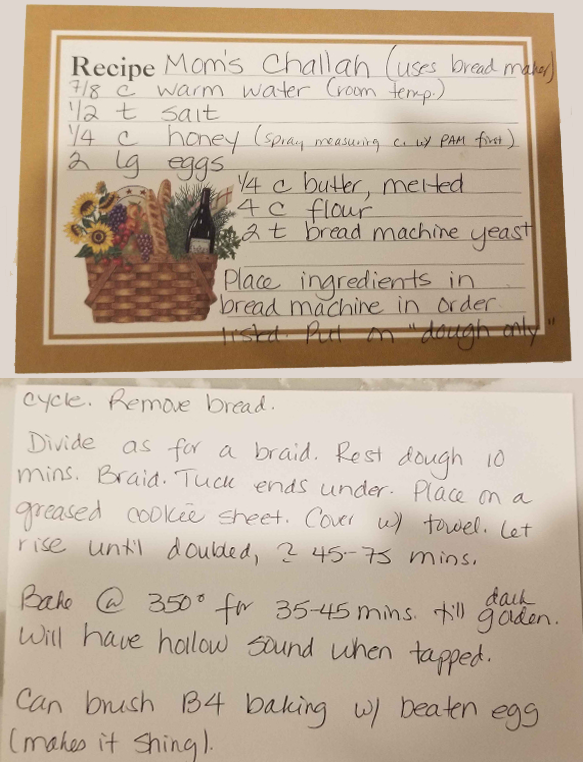 Recipe Mom's Challah (uses bread maker)
7/8 c warm water (room temp.)
1/2 t salt
1/4 c honey (spray measuring c. w/ PAM first)
2 lg eggs
1/4 c butter, melted
4 c flour
2 t bread machine yeast
Place ingredients in
bread machine in order
listed. Put on "dough only"
cycle. Remove bread.
Divide as for a braid. Rest dough 10
mins. Braid. Tuck ends under. Place on a
greased cookie sheet. Cover w/ towel. Let
rise until doubled, ~ 45-75 mins.
Bake @ 350° for 35-45 mins. till dark golden.
Will have hollow sound when tapped.
Can brush B4 baking w/ beaten egg
(makes it shiny).